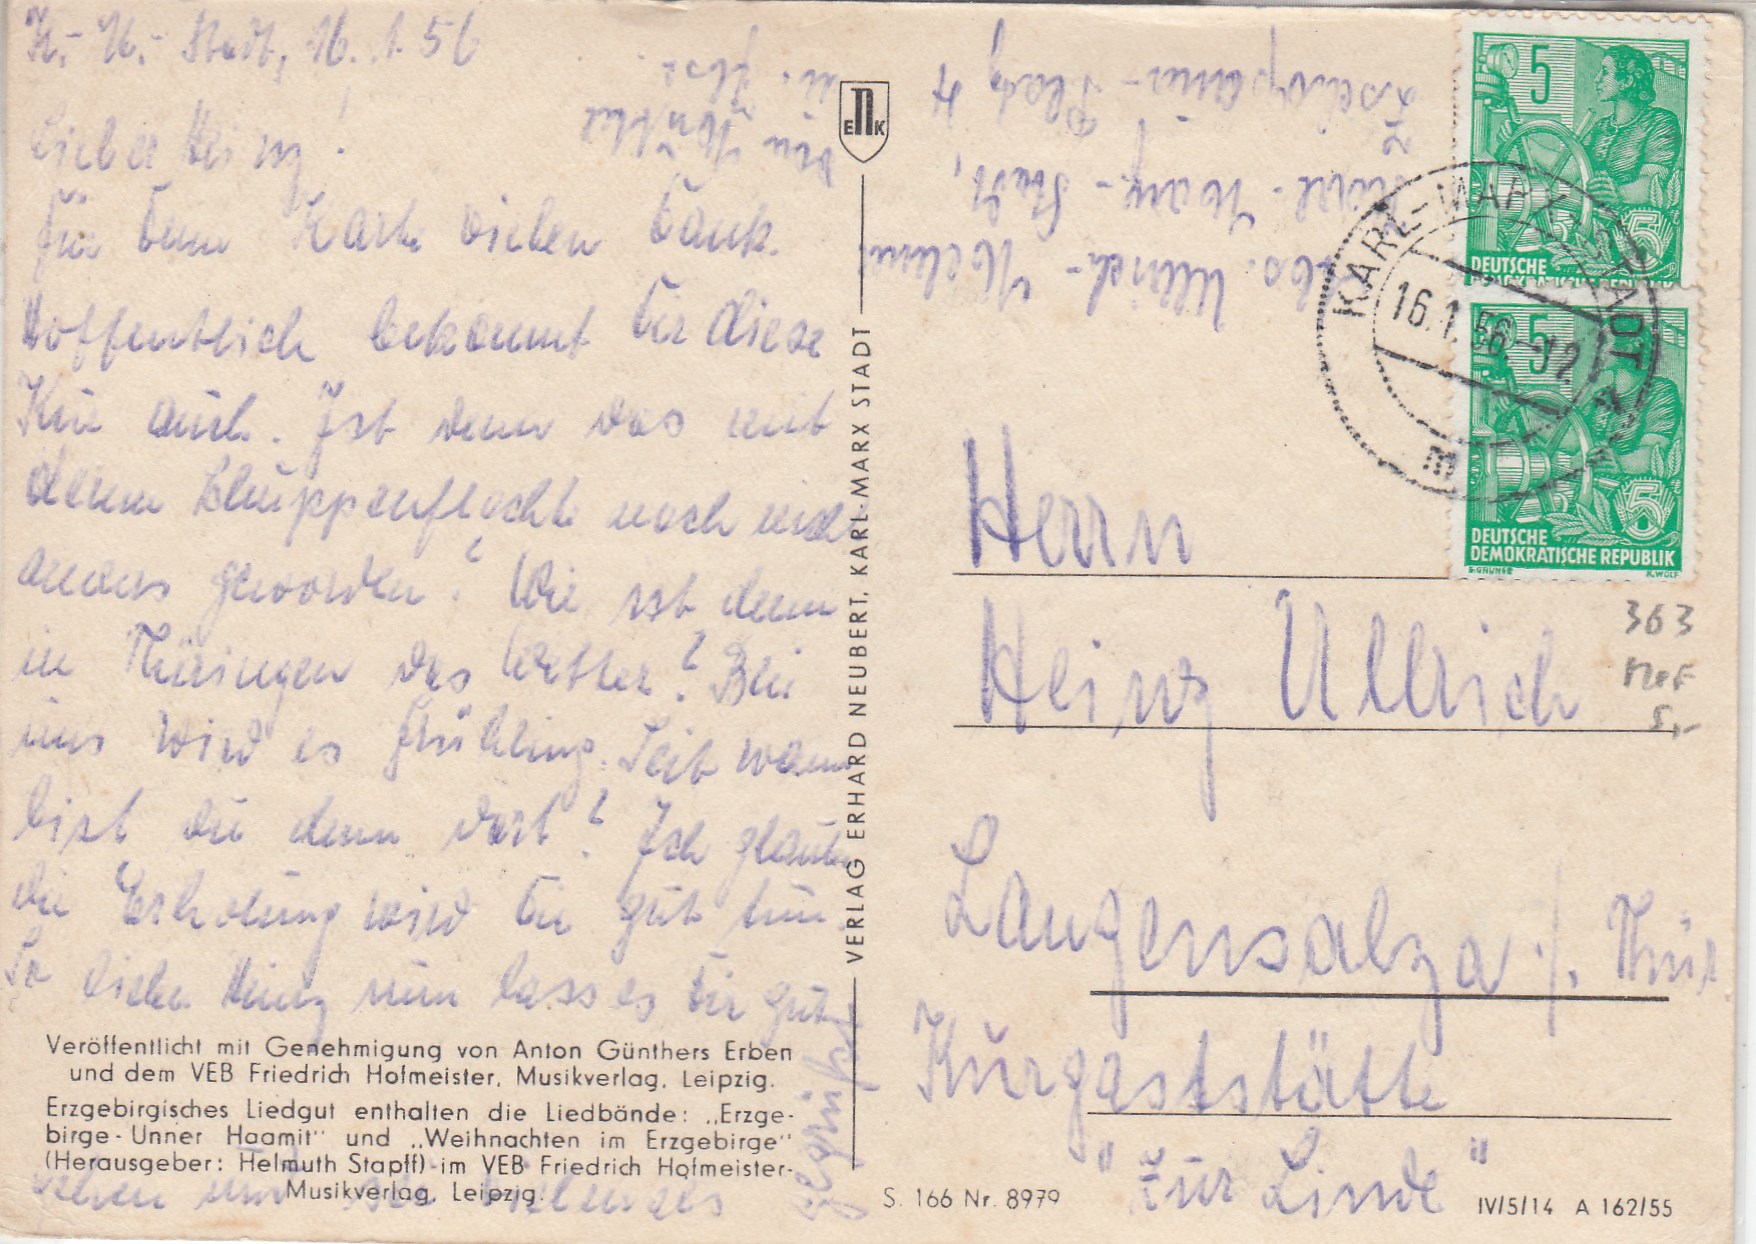 K.-M.-Stadt, 16.1.56
Lieber Heinz!
Für Deine Karte vielen Dank.
Hoffentlich bekommt Dir diese
Kur auch. Ist denn das mit
deiner noch nicht
anders geworden? Wie ist denn
in Thüringen das Wetter? Bei
uns wird es Frühling. Seit wann
bist du denn dort? Ich glaube
die Erholung wird Dir gut tun.
So lieber Heinz nun lass es Dir gut
gehen und sei vielmals
gegrüßt
von Mutter
u.
Abs. Ullrich-
Karl-Marx-Stadt,
Zschopauer-Platz 4
ENK
VERLAG ERHARD NEUBERT, KARL-MARX STADT
Veröffentlicht mit Genehmigung von Anton Günthers Erben
und dem VEB Friedrich Hofmeister, Musikverlag, Leipzig.
Erzgebirgisches Liedgut enthalten die Liedbände: „Erzge-
birge-Unner Haamit" und „Weihnachten im Erzgebirge"
(Herausgeber: Helmuth Stapff) im VEB Friedrich Hofmeister-
Musikverlag, Leipzig.
5
DEUTSCHE
5
5
DEUTSCHE
DEMOKRATISCHE REPUBLIK
E.GRUNER K.WOLF
KARL-MARX-STADT
16.1.56-12
m
363
MeF
5,-
Herrn
Heinz Ullrich
Langensalza /. Thür.
Kurgaststätte
"Zur Linde"
S. 166 Nr. 8979
IV/5/14 A 162/55